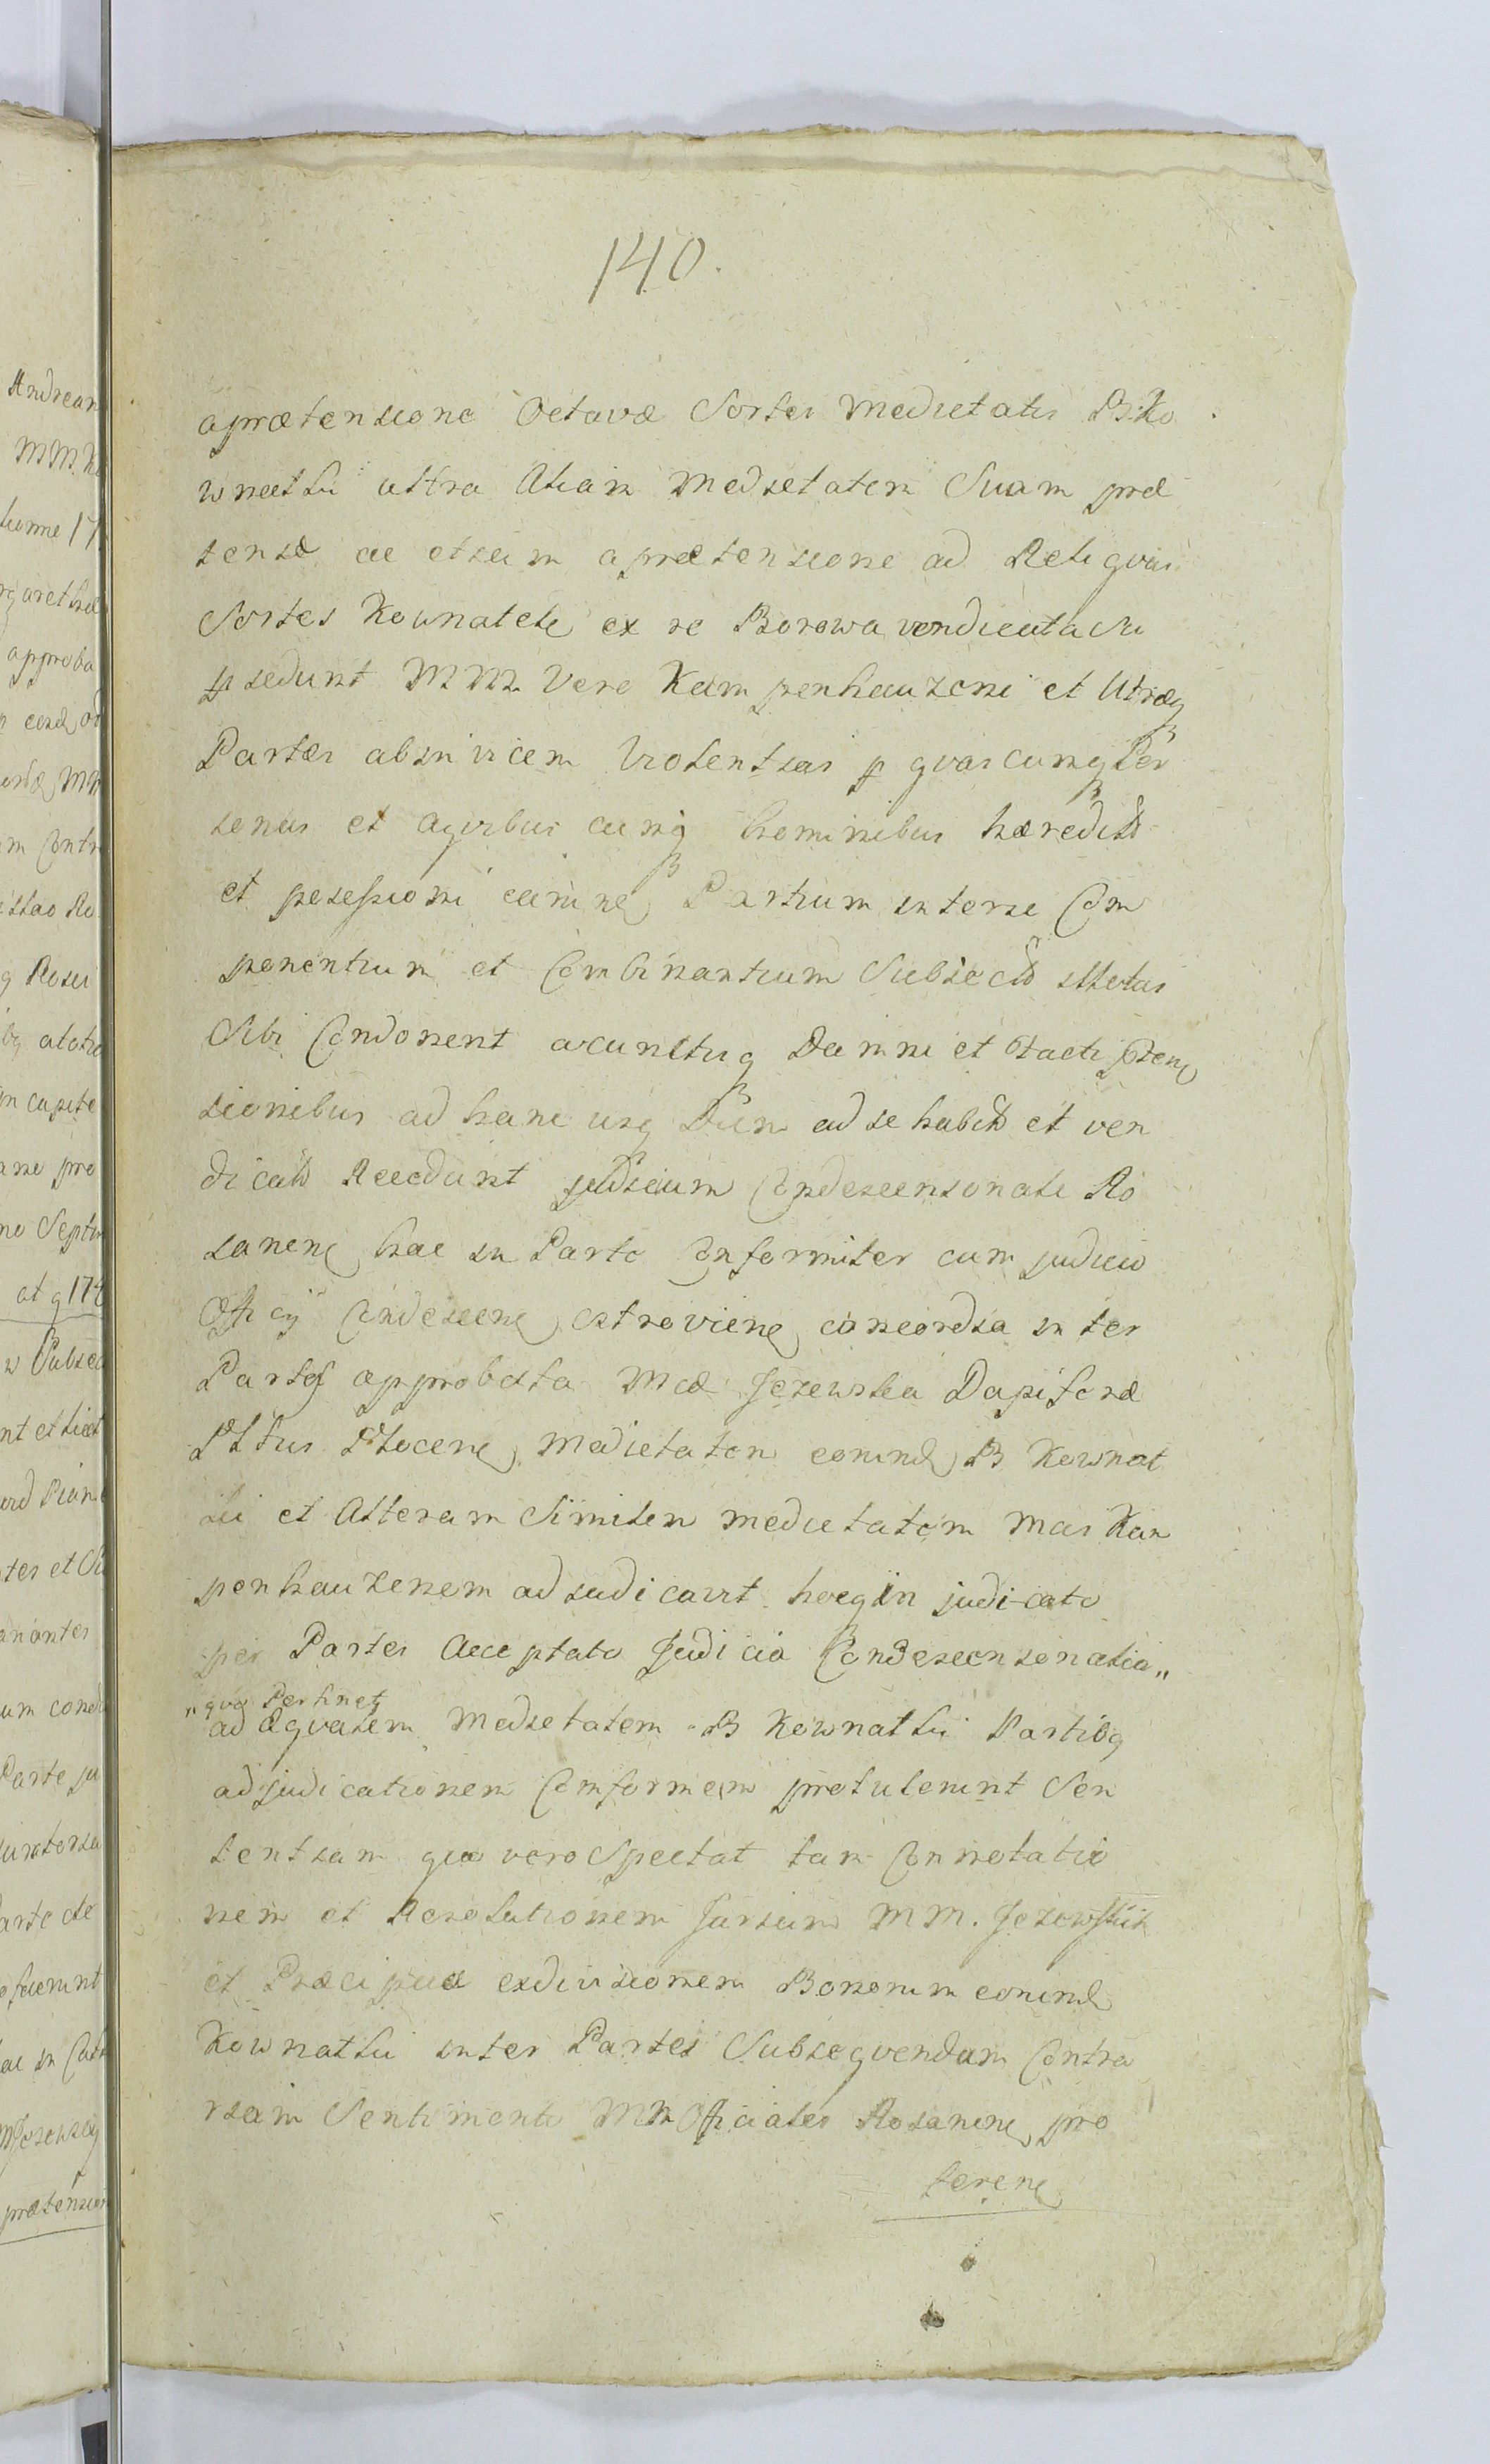 140.
a prætensione Octavæ Sortis Medietatis B. Ko
wnatki ultra Aliam Medietatem Suam præ
tensæ ac etiam a prætensione ad Reliquas
Sortes Kownatcke ex re Borowa vendicata
cedunt MM. Vero Kampenhauzeni et Utræq
Partes ab invicem Violentias p quascunq Per
sonas et a quibus cunq hominibus hæredit
et possessioni earund Partium inter se Com
ponentium et Combinantium Subsecut illatas
Sibi Condonent a cunctisq Damni et facti pten
sionibus ad hanc usq Diem ad se habit et ven
dicat Recedunt judicium Condescensonale Ro
sanen hac in Parte Conformiter cum judicio
Officij Condescen Ostrovien concordia inter
Partes approbata Mcæ Jezewska Dapiferæ
Pttus Plocen, Medietatem eorund B Kownat
ki et Alteram Similem medietatem Mcis Kam
penhauzenem adiudicavit hocq in judicato
per Partes Acceptato Judicia Condescensonalia „
„ qvo Pertinet
ad æqvalem Medietatem B Kownatki Partibq
adjudicationem Conformem protulerunt Sen
tentiam quo vero Spectat tam Connotatio
nem et Resolutionem Jurium MM. Jezewskich
et Præcipue exdivisionem Bonorum eorund
Kownatki inter Partes Subseqvendam Contra
riam Sentimenti MM Officiales Rosanen, pro
feren
Andream
MM. K
approba
in capite
pro
no Septim
w Subsec
nt et licet
ter et Su
um cond
Parte ju
arte de
fuerunt
prætension